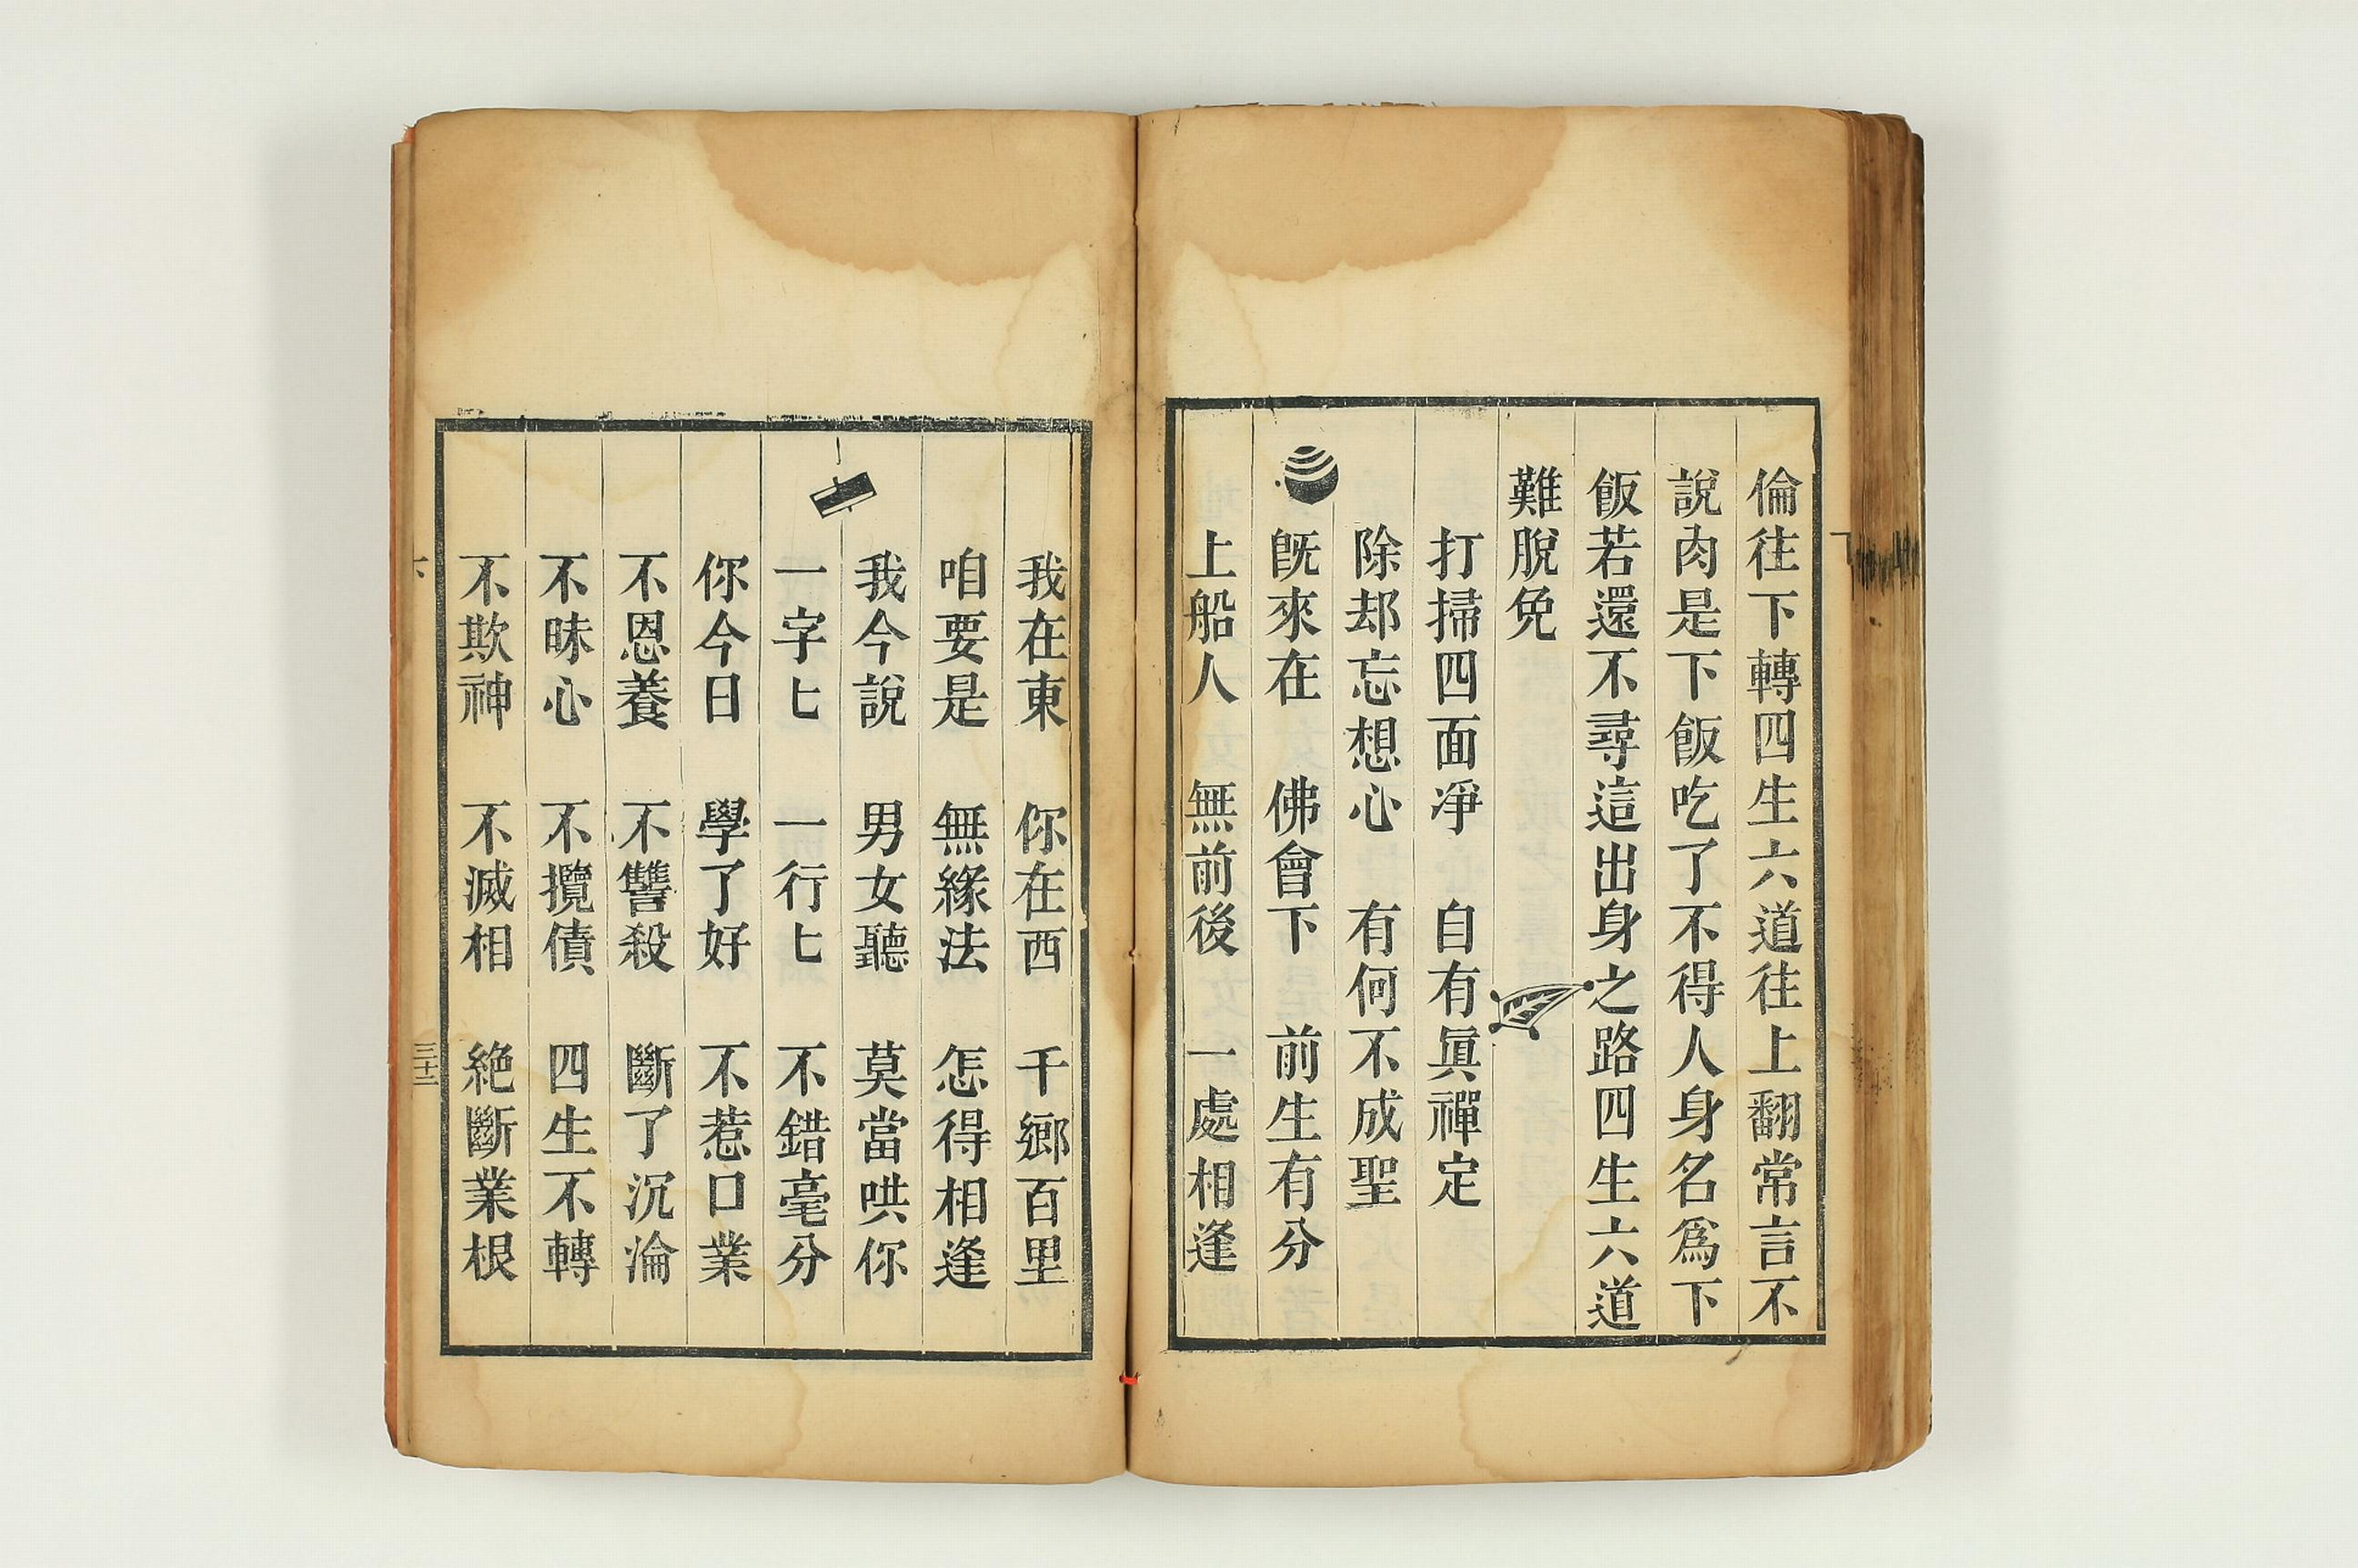 倫往下轉四生六道往上翻常言不
說肉是下飯吃了不得人身名爲下
飯若還不尋這出身之路四生六道
難脫免
打掃四面凈　自有眞禪定
除却忘想心　有何不成聖
旣來在　佛會下　前生有分
上船人　無前後　一處相逢
我在東　你在西　千鄉百里
咱要是　無緣法　怎得相逢
我今說　男女聽　莫當哄你
一字匕　一行匕　不錯毫分
你今日　學了好　不惹口業
不恩養　不讐殺　斷了沉淪
不昧心　不攬債　四生不轉
不欺神　不滅相　絶斷業根
三十二